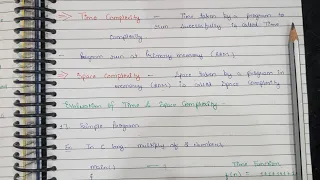 → Time Complexity - Time taken by a program to
run successfully is called Time
Complexity
- Program run at Primary memory (RAM).
→ Space Complexity - Space taken by a program in
memory (RAM) is called Space Complexity
Evaluation of Time & Space Complexity -
1. Simple Program
In C lang. multiply of 3 numbers
main() Time Function
{